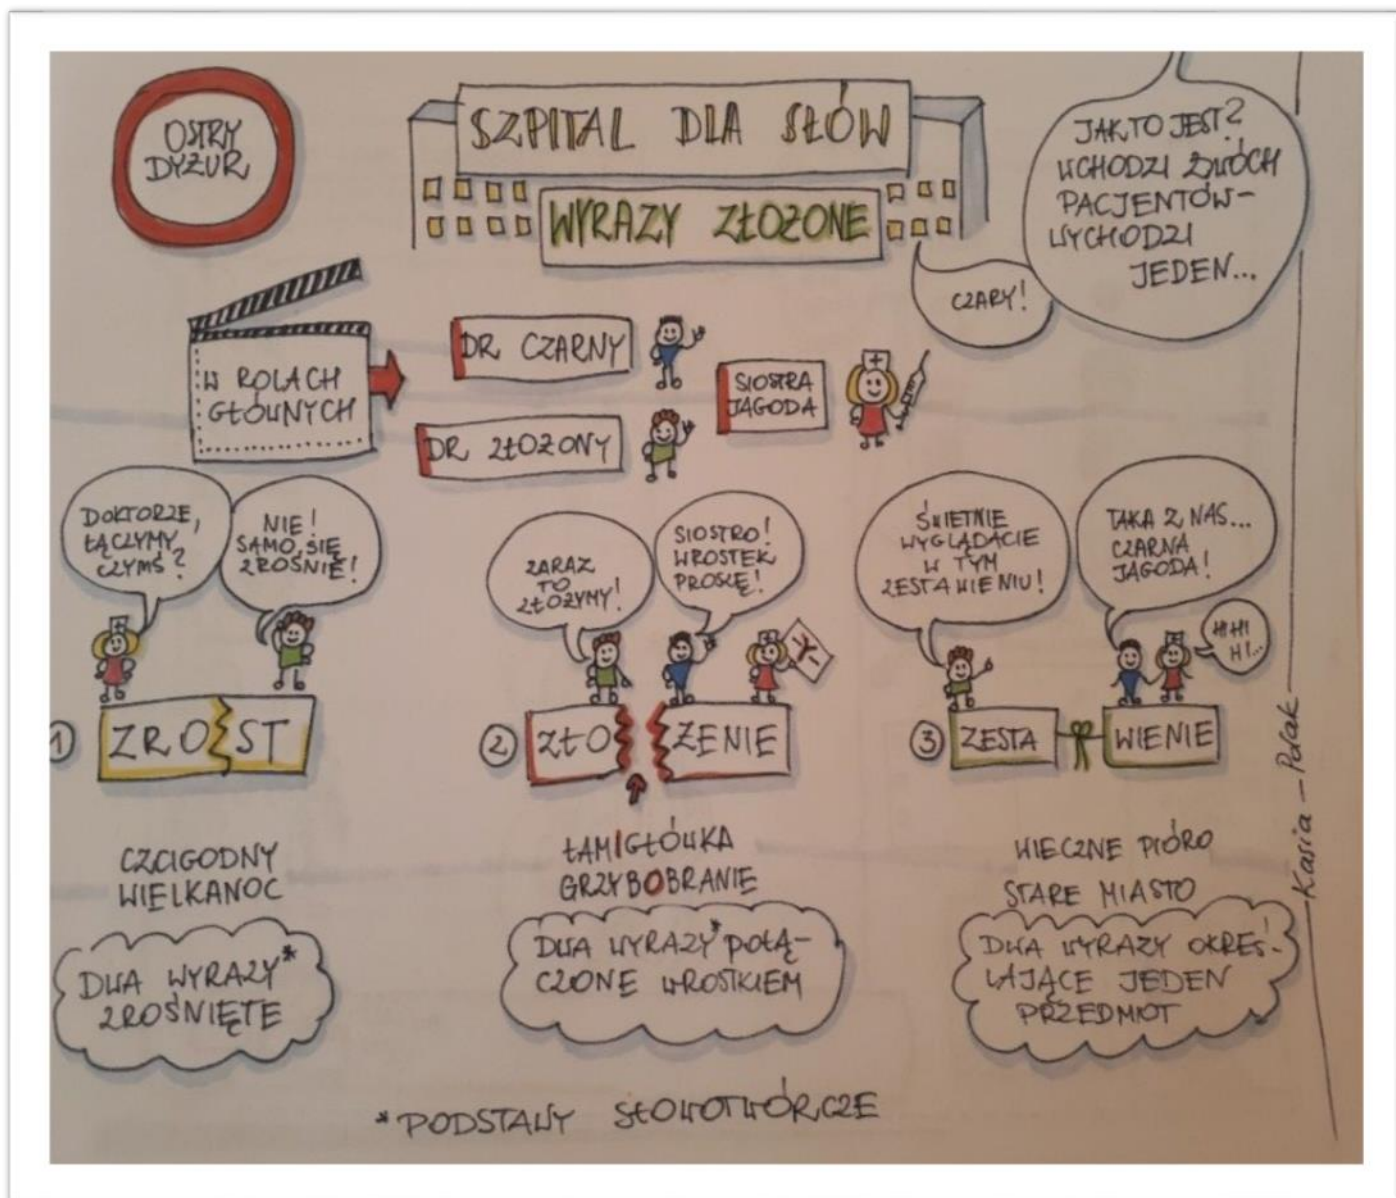 OSTRY
DYŻUR
SZPITAL DLA SŁÓW
WYRAZY ZŁOŻONE
JAK TO JEST?
WCHODZI DWÓCH
PACJENTÓW-
WYCHODZI
JEDEN...
CZARY!
W ROLACH
GŁÓWNYCH
DR CZARNY
DR ZŁOŻONY
SIOSTRA
JAGODA
DOKTORZE,
ŁĄCZYMY
CZYMŚ?
NIE!
SAMO SIĘ
ZROŚNIE!
ZARAZ
TO
ZŁOŻYMY!
SIOSTRO!
WROSTEK
PROSZĘ!
ŚWIETNIE
WYGLĄDACIE
W TYM
ZESTAWIENIU!
TAKA Z NAS...
CZARNA
JAGODA!
HI HI
HI...
-Y-
1) ZROST
2 ZŁO ŻENIE
3 ZESTA WIENIE
CZCIGODNY
WIELKANOC
DWA WYRAZY*
ZROŚNIĘTE
ŁAMIGŁÓWKA
GRZYBOBRANIE
DWA WYRAZY* POŁĄ-
CZONE WROSTKIEM
WIECZNE PIÓRO
STARE MIASTO
DWA WYRAZY OKREŚ-
LAJĄCE JEDEN
PRZEDMIOT
*PODSTAWY SŁOWOTWÓRCZE
Kasia - Polak